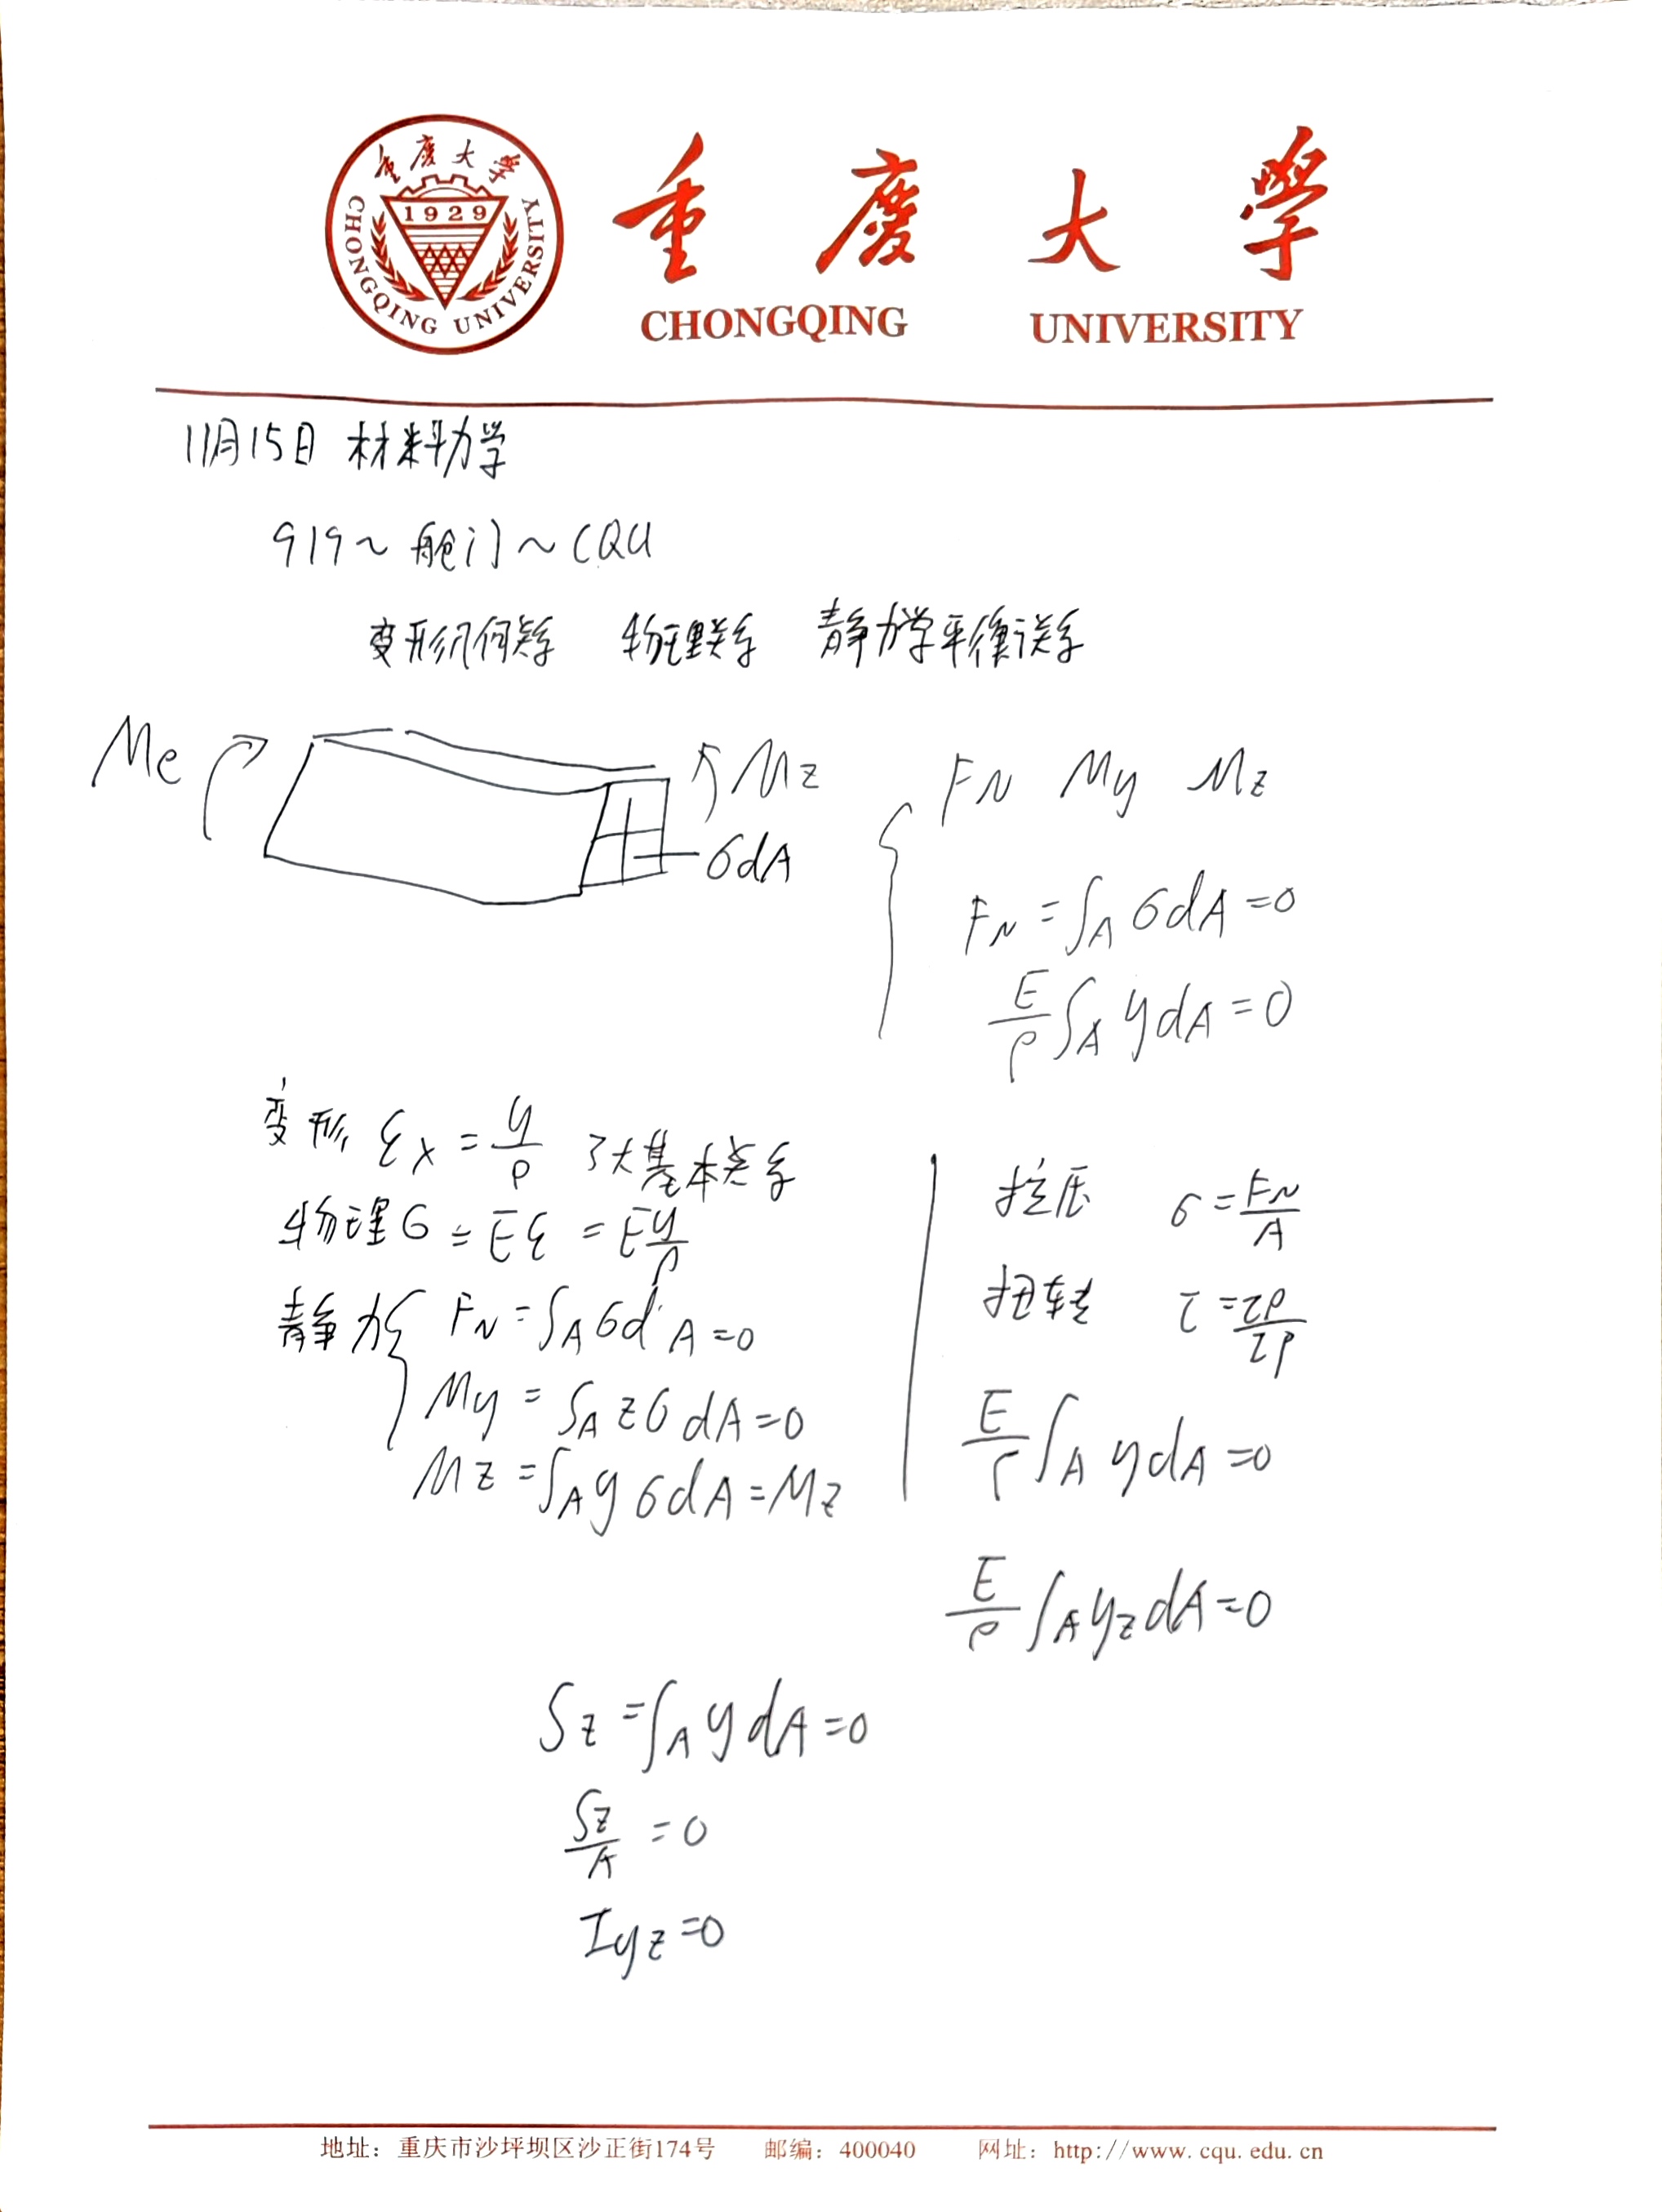 重慶大學
1929
CHONGQING UNIVERSITY
重慶大學
CHONGQING UNIVERSITY
11月15日 材料力学
919~舱门~CQU
变形几何关系 物理关系 静力学平衡关系
Me
Mz
σdA
FN My Mz
FN=∫A σdA=0
E/ρ ∫A ydA=0
变形 εx=y/ρ 3大基本关系
物理σ=Eε=Ey/ρ
静力{ FN=∫AσdA=0
My=∫AzσdA=0
Mz=∫AyσdA=Mz
拉压 σ=FN/A
扭转 τ=Tρ/Iρ
E/ρ ∫A ydA=0
E/ρ ∫A yzdA=0
Sz=∫A ydA=0
Sz/A=0
Iyz=0
地址：重庆市沙坪坝区沙正街174号 邮编：400040 网址：http://www.cqu.edu.cn